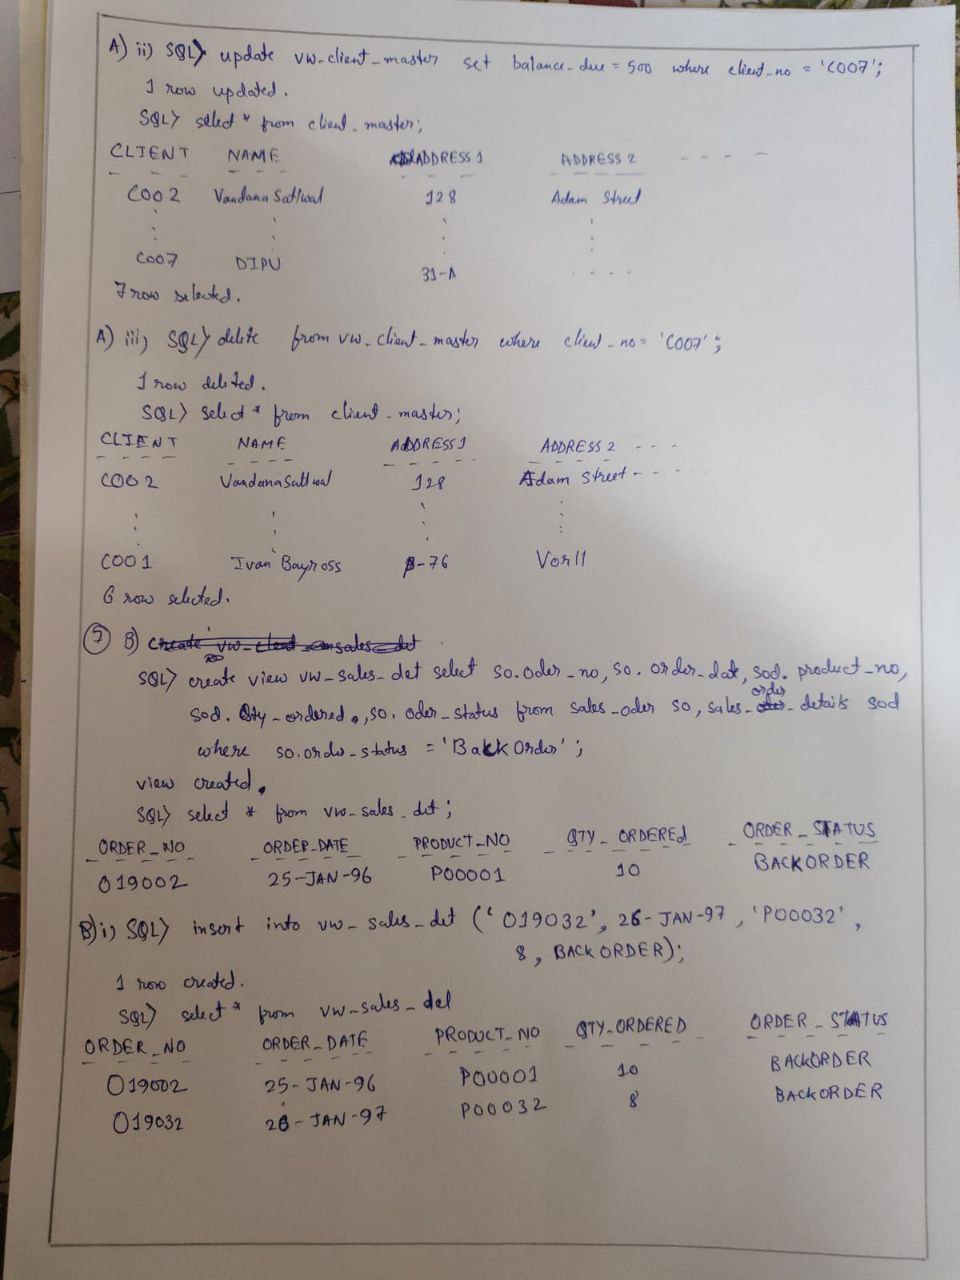 A) ii) SQL> update vw_client_master set balance_due = 500 where client_no = 'C007';
1 row updated.
SQL> select * from client_master;
CLIENT NAME ADDRESS 1 ADDRESS 2 - - - -
C002 Vandana Satlwal 128 Adam Street
C007 DIPU 31-A - - - -
7 row selected.
A) iii) SQL> delete from vw_client_master where client_no = 'C007';
1 row deleted.
SQL> select * from client_master;
CLIENT NAME ADDRESS 1 ADDRESS 2 - - -
C002 Vandana Satlwal 128 Adam Street - - -
C001 Ivan Bayross B-76 Vorll
6 row selected.
7 B)
SQL> create view vw_sales_det select so.oder_no, so.order_dat, sod.product_no,
sod.Qty_ordered, so.oder_status from sales_oder so, sales_order_details sod
where so.order_status = 'BackOrder';
view created.
SQL> select * from vw_sales_det;
ORDER_NO ORDER_DATE PRODUCT_NO QTY_ORDERED ORDER_STATUS
O19002 25-JAN-96 P00001 10 BACKORDER
B) i) SQL> insert into vw_sales_det ('O19032', 26-JAN-97, 'P00032',
8, BACKORDER);
1 row created.
SQL> select * from vw_sales_det
ORDER_NO ORDER_DATE PRODUCT_NO QTY_ORDERED ORDER_STATUS
O19002 25-JAN-96 P00001 10 BACKORDER
O19032 26-JAN-97 P00032 8 BACKORDER